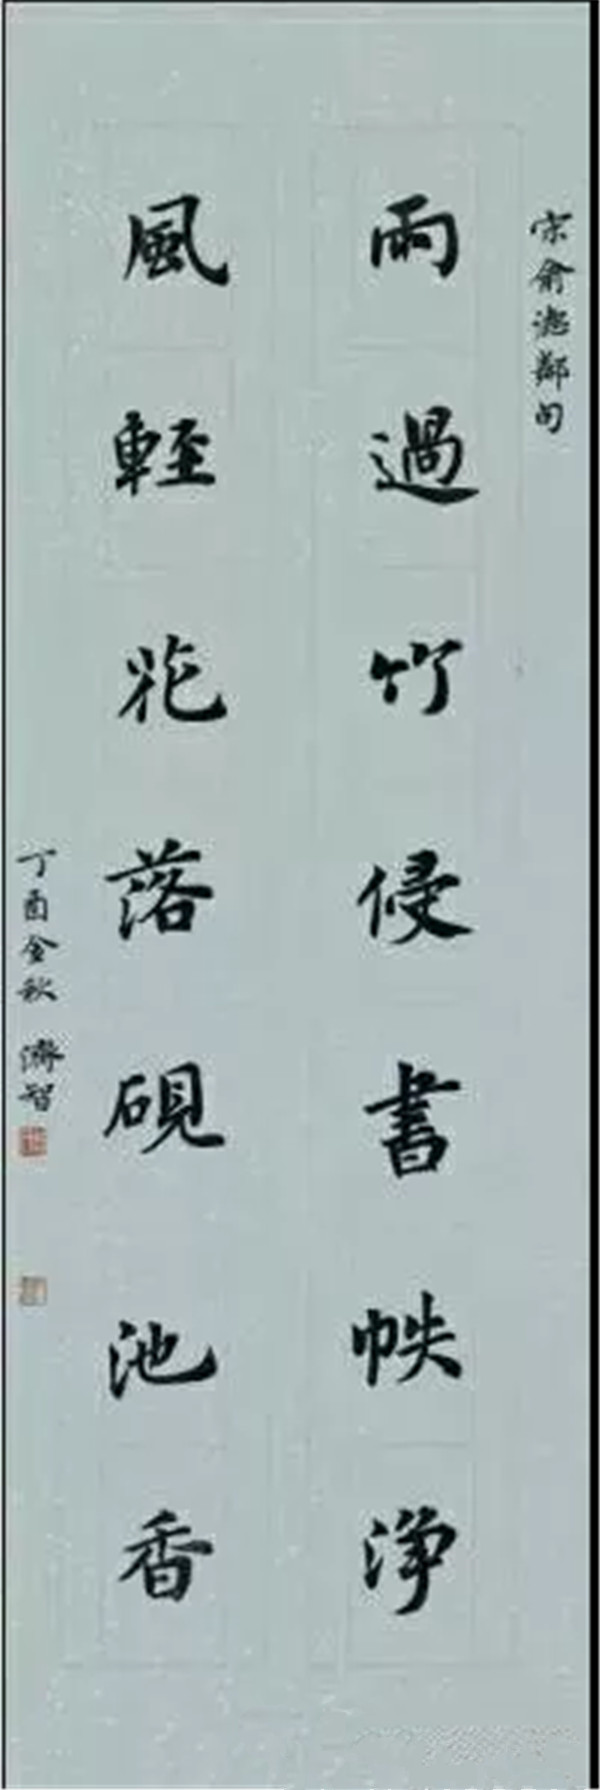 宋俞德鄰句
雨過竹侵書帙淨
風輕花落硯池香
丁酉金秋 濟智